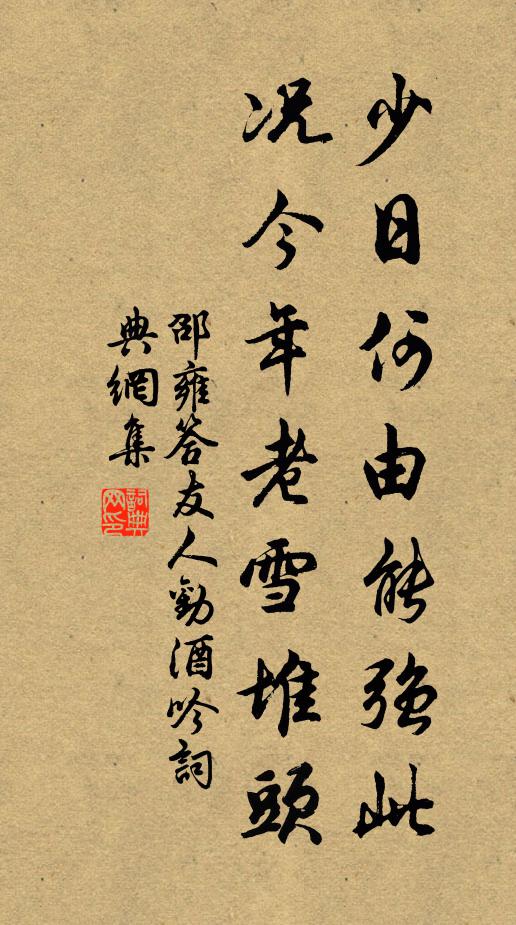 少日何由能強此
况今年老雪堆頭
邵雍答友人勸酒吟詞
典網集
詞典網印